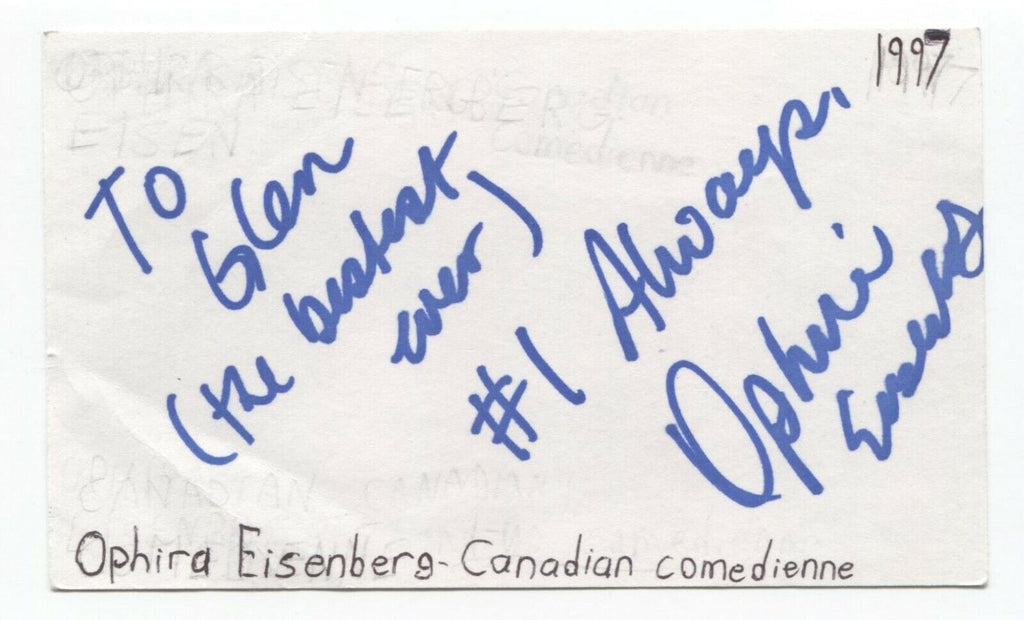 1997
To Glen
(the bestest
ever)
#1 Always.
Ophira
Eisenberg
Ophira Eisenberg - Canadian comedienne